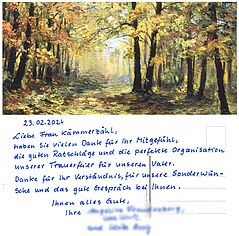 23.02.2024
Liebe Frau Kämmerzähl,
haben Sie vielen Dank für Ihr Mitgefühl,
die guten Ratschläge und die perfekte Organisation
unserer Trauerfeier für unseren Vater.
Danke für Ihr Verständnis, für unsere Sonderwün-
sche und das gute Gespräch bei Ihnen.
Ihnen alles Gute,
Ihre